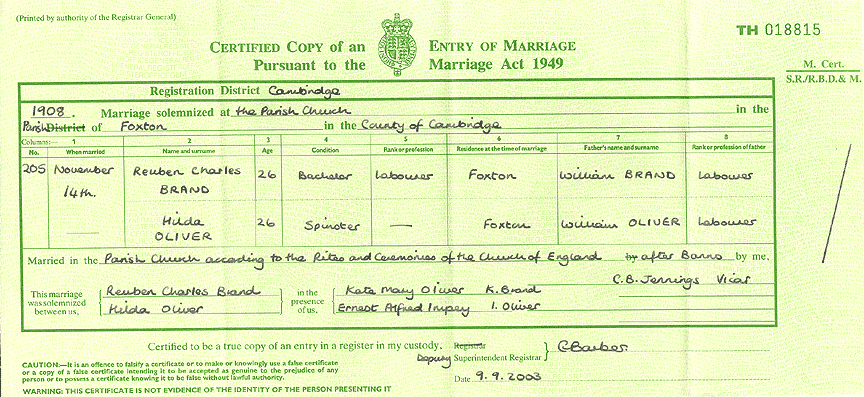 (Printed by authority of the Registrar General)
TH 018815
CERTIFIED COPY of an ENTRY OF MARRIAGE
Pursuant to the Marriage Act 1949
M. Cert.
S.R./R.B.D. & M.
Registration District Cambridge
1908. Marriage solemnized at the Parish Church in the
Parish District of Foxton in the County of Cambridge
Columns:— 1 2 3 4 5 6 7 8
No. When married Name and surname Age Condition Rank or profession Residence at the time of marriage Father's name and surname Rank or profession of father
205 November Reuben Charles 26 Bachelor Labourer Foxton William BRAND Labourer
14th. BRAND
Hilda 26 Spinster — Foxton William OLIVER Labourer
OLIVER
Married in the Parish Church according to the Rites and Ceremonies of the Church of England by after Banns by me,
C.B. Jennings Vicar
This marriage was solemnized between us,
Reuben Charles Brand
Hilda Oliver
in the presence of us,
Kate Mary Oliver K. Brand
Ernest Alfred Impey I. Oliver
Certified to be a true copy of an entry in a register in my custody.
Registrar
Deputy Superintendent Registrar
CBarber
Date 9.9.2003
CAUTION:—It is an offence to falsify a certificate or to make or knowingly use a false certificate
or a copy of a false certificate intending it to be accepted as genuine to the prejudice of any
person or to possess a certificate knowing it to be false without lawful authority.
WARNING: THIS CERTIFICATE IS NOT EVIDENCE OF THE IDENTITY OF THE PERSON PRESENTING IT